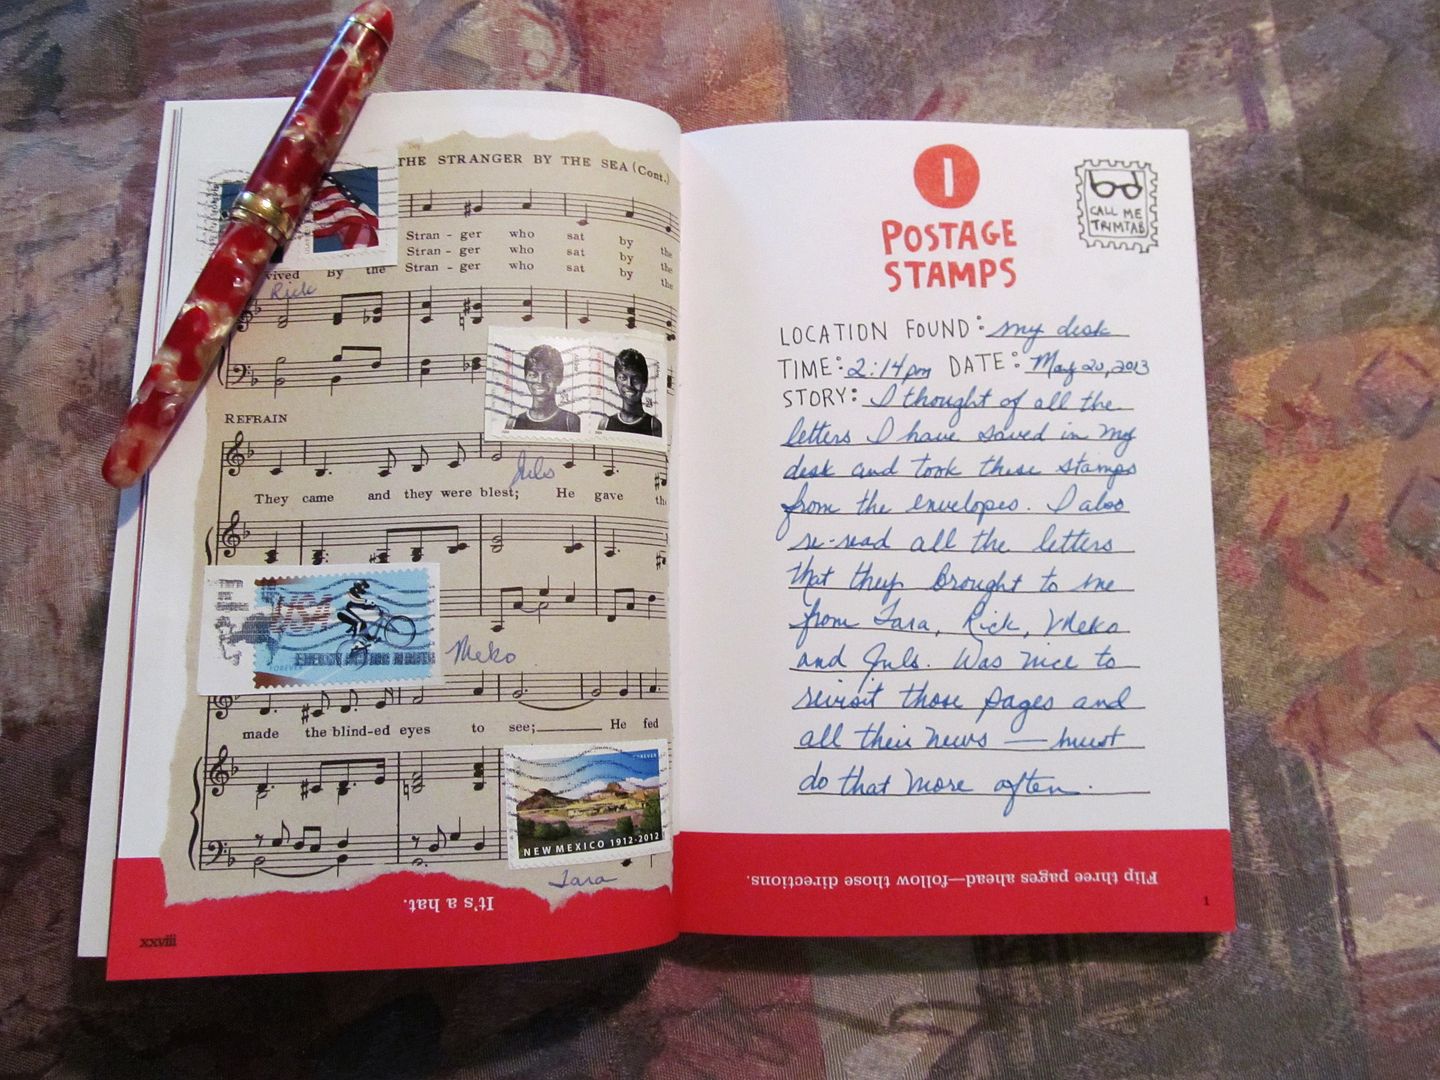 THE STRANGER BY THE SEA (Cont.)
Stran - ger who sat by the
Stran - ger who sat by the
vived By the Stran - ger who sat by the
Rick
REFRAIN
Juls
They came and they were blest; He gave
USA
FOREVER
Meko
made the blind-ed eyes to see; He fed
FOREVER
NEW MEXICO 1912-2012
Tara
It's a hat.
xxviii
1
POSTAGE
STAMPS
CALL ME
TRIMTAB
LOCATION FOUND: my desk
TIME: 2:14pm DATE: May 20, 2013
STORY: I thought of all the
letters I have saved in my
desk and took these stamps
from the envelopes. I also
re-read all the letters
that they brought to me
from Tara, Rick, Meko
and Juls. Was nice to
revisit those pages and
all their news — must
do that more often.
Flip three pages ahead—follow those directions.
1